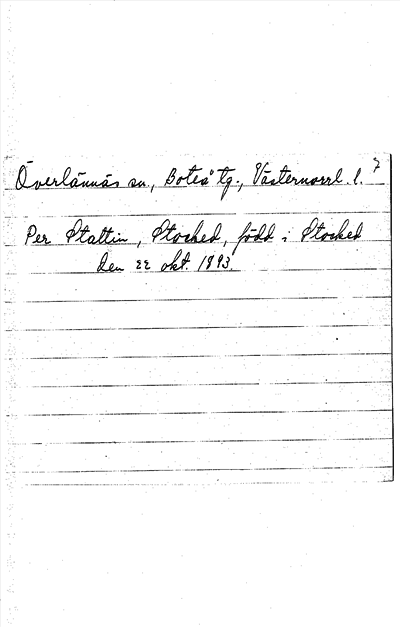 Överlännäs sn., Boteå tg., Västernorrl. l. 7
Per Stattin, Stocked, född i Stocked
den 22 okt. 1893.